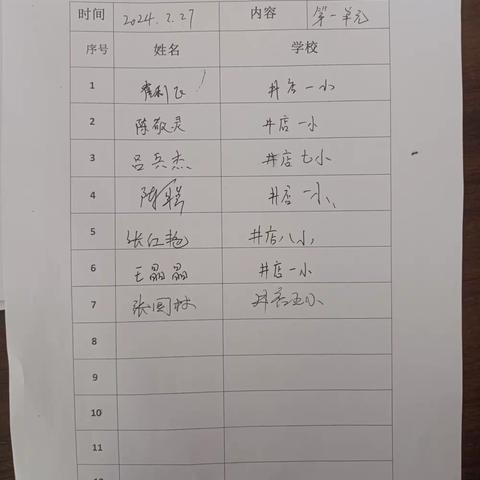 时间 2024.2.27 内容 第一单元
序号 姓名 学校
1 崔利民 井店一小
2 陈敬灵 井店一小
3 吕兵杰 井店七小
4 陈 井店一小
5 张红艳 井店八小
6 王晶晶 井店一小
7 张国林 井店五小
8
9
10
11